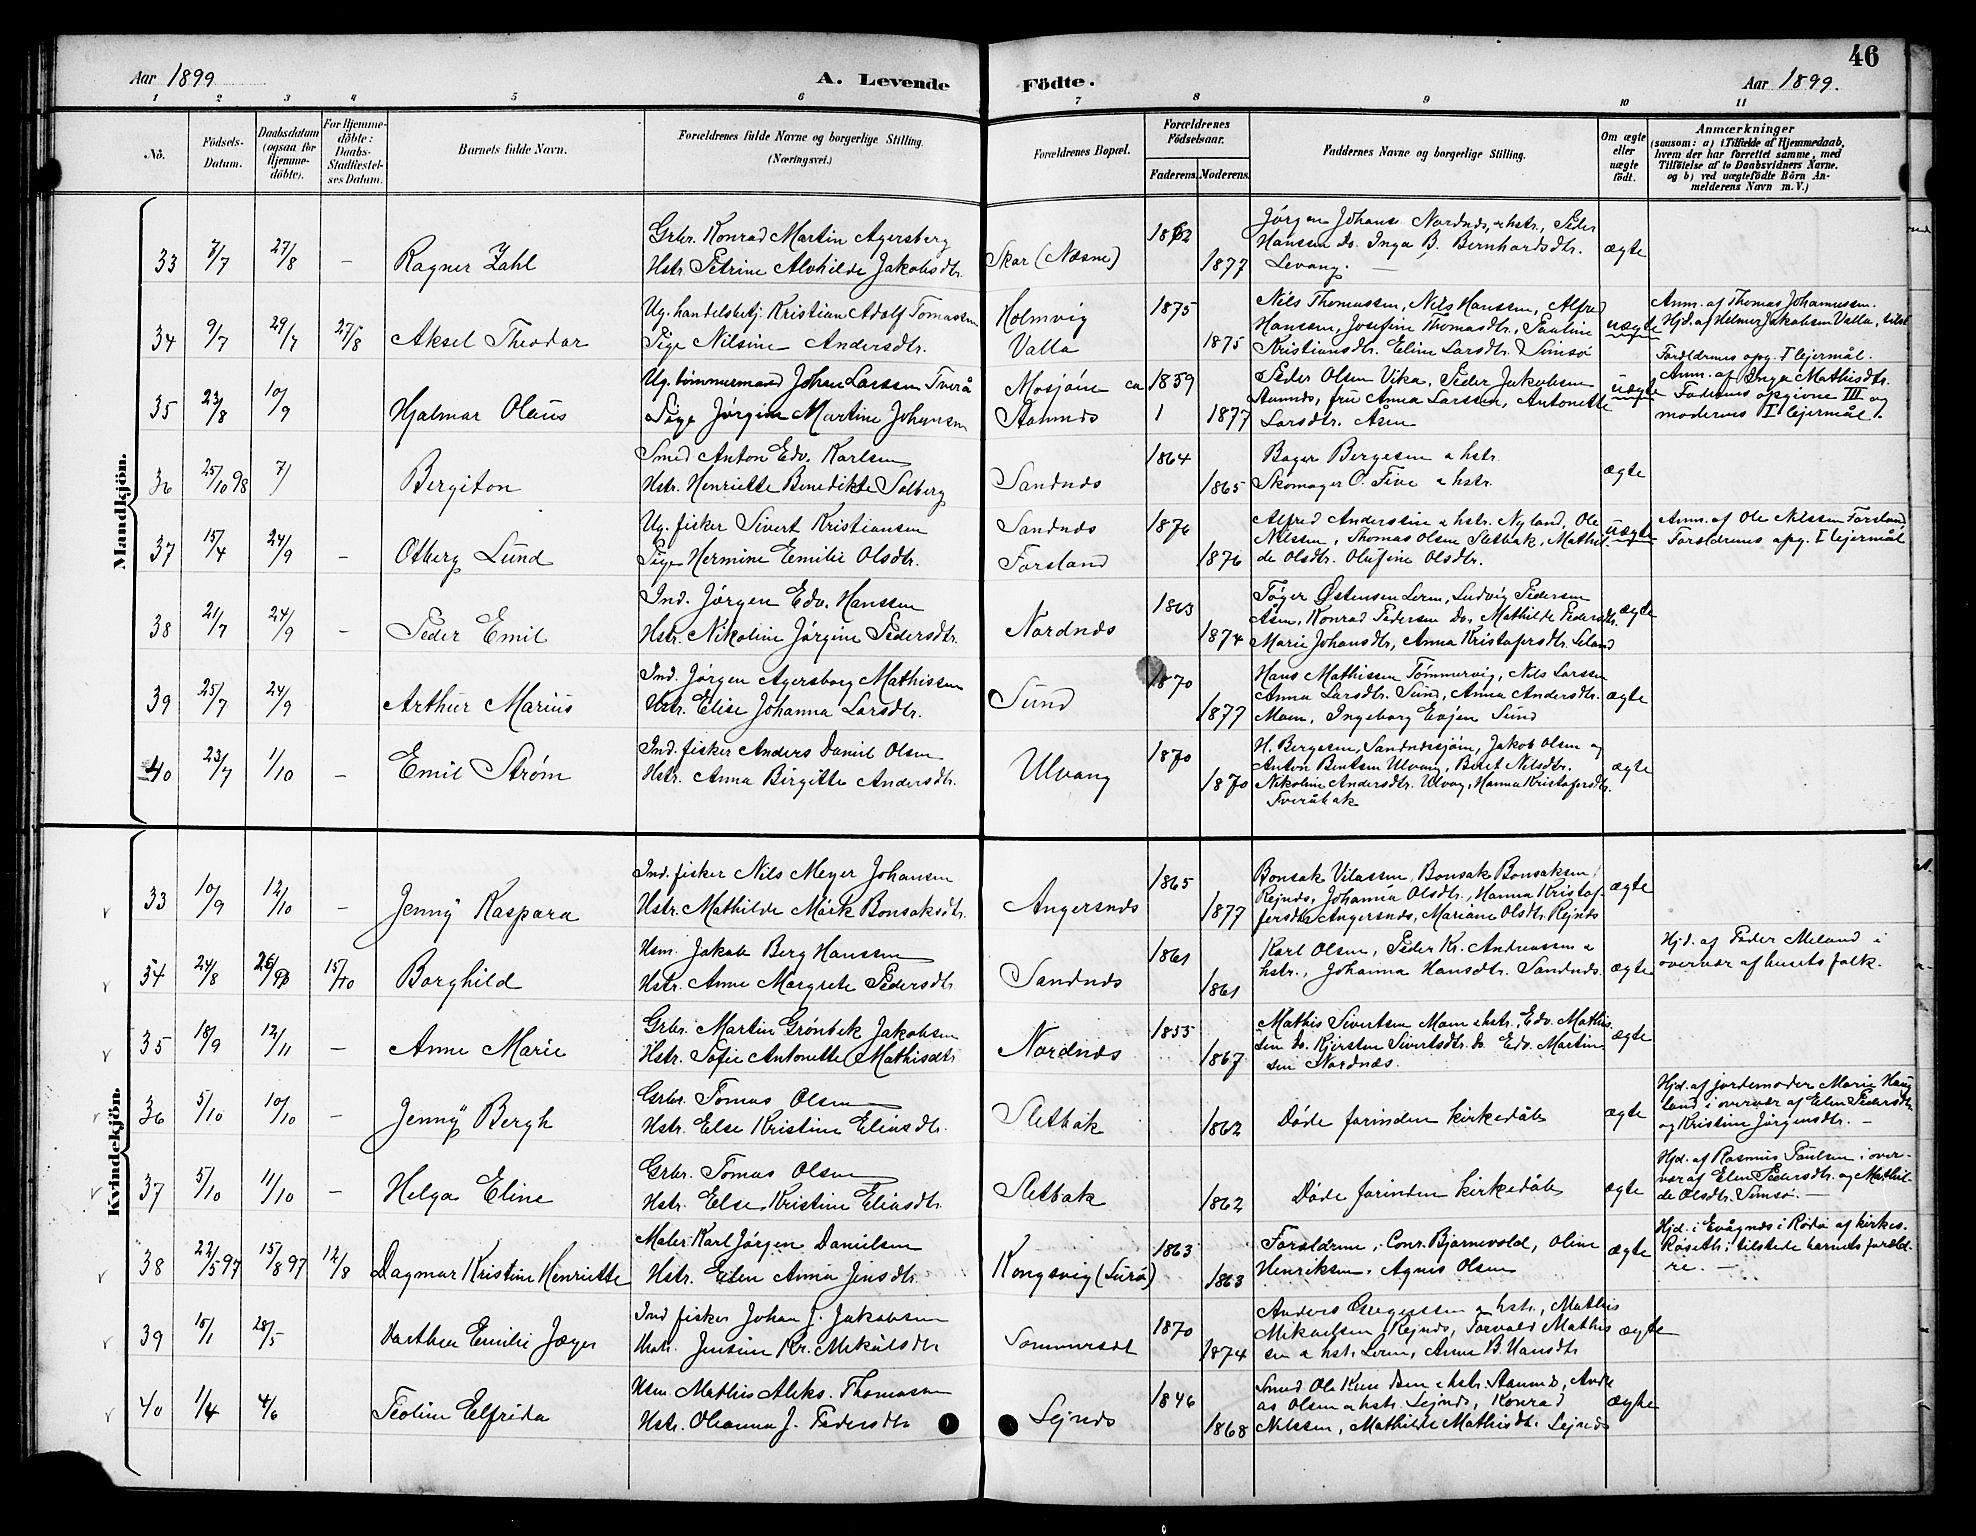 46
Aar 1899
A. Levende Födte.
Aar 1899.
1 2 3 4 5 6 7 8 9 10 11
No.
Födsels-Datum.
Daabsdatum (ogsaa for Hjemme-döbte).
For Hjemme-döbte: Daabs-Stadfæstel-ses Datum.
Barnets fulde Navn.
Forældrenes fulde Navne og borgerlige Stilling. (Næringsvei.)
Forældrenes Bopæl.
Forældrenes Födselsaar.
Faderens. Moderens.
Faddernes Navne og borgerlige Stilling.
Om ægte eller uægte födt.
Anmærkninger (saasom: a) i Tilfælde af Hjemmedaab, hvem der har forrettet samme, med Tilföielse af to Daabsvidners Navne. og b) ved uægtefödte Börn An-melderens Navn m.V.)
Mandkjön.
33 7/7 27/8 - Ragner Zahl
Grbr. Konrad Martin Agersberg
Hstr. Petrine Alvhilde Jakobsdtr.
Skar (Næsne) 1862 1877
Jørgen Johans. Nordnæs, & hstr., Peder
Hanssen do. Inga B. Bernhardsdtr.
Levang. -
ægte
34 9/7 29/7 27/8 Aksel Theodor
Ug. handelsbetj. Kristian Adolf Tomassen
Pige Nilsine Andersdtr.
Holmvig
Valla
1875 1875
Nils Thomassen, Nils Hanssen, Alfred
Hanssen, Josefine Thomasdtr., Pauline
Kristiansdtr. Eline Larsdtr. Simsø
uægte
Anm. af Thomas Johannessen.
Hjd. af Helmer Jakobsen Valla, tilst
Forældrenes opg. I lejermål.
35 23/8 10/9 Hjalmar Olaus
Ug. tømmermand Johan Larssen Tverå
Pige Jørgine Martine Johansen
Mosjøen ca
Stamnæs
1859 1877
Peder Olsen Vika, Peder Jakobsen
Stamnæs, fru Anna Larssen, Antonette
Larsdtr. Åsen
uægte
Anm. af Inga Mathisdtr.
Faderens opgivne III og
moderens I lejermål.
36 25/10 98 7/ Bergiton
Smed Anton Edv. Karlsen
Hstr. Henriette Benedikte Solberg
Sandnæs 1864 1865
Bager Bergesen & hstr.
Skomager O. Five & hstr.
ægte
37 15/4 24/9 - Otberg Lund
Ug. fisker Sivert Kristiansen
Pige Hermine Emilie Olsdtr.
Sandnæs
Forsland
1876 1876
Alfred Anderssen & hstr. Nyland, Ole
Nilssen, Thomas Olsen Sletbak, Mathil
de Olsdtr. Olufine Olsdtr.
uægte
Anm. af Ole Nilssen Forsland
Forældrenes opg. I lejermål
38 21/7 24/9 - Peder Emil
Ind. Jørgen Edv. Hanssen
Hstr. Nikoline Jørgine Pedersdtr.
Nordnæs 1863 1874
Tøger Østensen Lerm, Ludvig Pedersen
Åsen, Konrad Pedersen do., Mathilde Pedersdtr.
Marie Johansdtr., Anna Kristofersdtr. Leland
ægte
39 25/7 24/9 Arthur Marius
Ind. Jørgen Agersborg Mathissen
Hstr. Elise Johanna Larsdtr.
Sund 1870 1877
Hans Mathissen Tømmervig, Nils Larssen
Anna Larsdtr. Sund, Anna Andersdtr.
Moen, Ingeborg Evjen Sund
ægte
40 23/7 1/10 - Emil Strøm
Ind. fisker Anders Daniel Olsen
Hstr. Anna Birgitte Andersdtr.
Ulvang 1870 1870
H. Bergesen, Sandnæssjøen, Jakob Olsen og
Anton Bentsen Ulvang, Beret Nilsdtr.
Nikoline Andersdtr. Ulvang, Hanna Kristofersdtr.
Tveråbak
ægte
Kvindekjön.
33 10/9 12/10 - Jenny Kaspara
Ind. fisker Nils Meyer Johansen
Hstr. Mathilde Mørk Bonsaksdtr.
Angersnæs 1865 1877
Bonsak Vilassen, Bonsak Bonsaksen,
Rejnæs, Johanna Olsdtr., Hanna Kristof-
fersdtr. Angersnæs, Mariane Olsdtr. Rejnæs
ægte
34 24/8 26/9 15/10 Borghild
Hsm. Jakob Berg Hanssen
Hstr. Anne Margrete Pedersdtr.
Sandnæs 1861 1861
Karl Olsen, Peder Kr. Andreassen &
hstr., Johanna Hansdtr. Sandnæs
ægte
Hjd. af Peder Meland i
overvær af husets folk.
35 18/9 12/11 - Anne Marie
Grbr. Martin Grønbek Jakobsen
Hstr. Sofie Antonette Mathisdtr
Nordnæs 1855 1867
Mathis Sivertsen Moen & hstr., Edv. Mathis
sen do. Kjersten Sivertsdtr. do. Edv. Martin
sen Nordnæs.
ægte
36 5/10 10/10 - Jenny Bergh
Grbr. Tomas Olsen
Hstr. Else Kristine Eliasdtr.
Sletbak 1862
Døde forinden kirkedåb
ægte
Hjd. af jordemoder Marie Haug
land i overvær af Elen Pedersdtr.
og Kristine Jørgensdtr. -
37 5/10 11/10 - Helga Eline
Grbr. Tomas Olsen
Hstr. Else Kristine Eliasdtr.
Sletbak 1862
Døde forinden kirkedåb
ægte
Hjd. af Rasmus Paulsen i over-
vær af Elen Pedersdtr. og Mathil
de Olsdtr. Simsø. -
38 22/5 97 15/8 97 12/8 Dagmar Kristine Henriette
Maler Karl Jørgen Danielsen
Hstr. Elen Anna Jensdtr.
Kongsvig (Lurø) 1863 1863
Forældrene, Conr. Bjørnevold, Oline
Henriksen, Agnes Olsen
ægte
Hjd. i Evågnæs i Rødø af kirkes.
Røseth; tilstede barnets foræld-
re. -
39 15/1 28/5 Darthea Emilie Jæger
Ind. fisker Johan J. Jakobsen
Hstr. Jensine Kr. Mikalsdtr
Sommersæt 1870 1874
Anders Gregussen & hstr., Mathis
Mikaelsen Rejnæs, Torvald Mathis
sen & hstr. Lerm, Anne B. Hansdtr
ægte
40 1/4 4/6 Teoline Elfrida
Hsm. Mathis Aleks. Thomassen
Hstr. Oleanna J. Pedersdtr
Lejnæs 1846 1868
Smed Ole Knudsen & hstr. Stamnæs, Andre
as Olsen & hstr. Lejnæs, Konrad
Nilssen, Mathilde Mathisdtr. Lejnæs
ægte